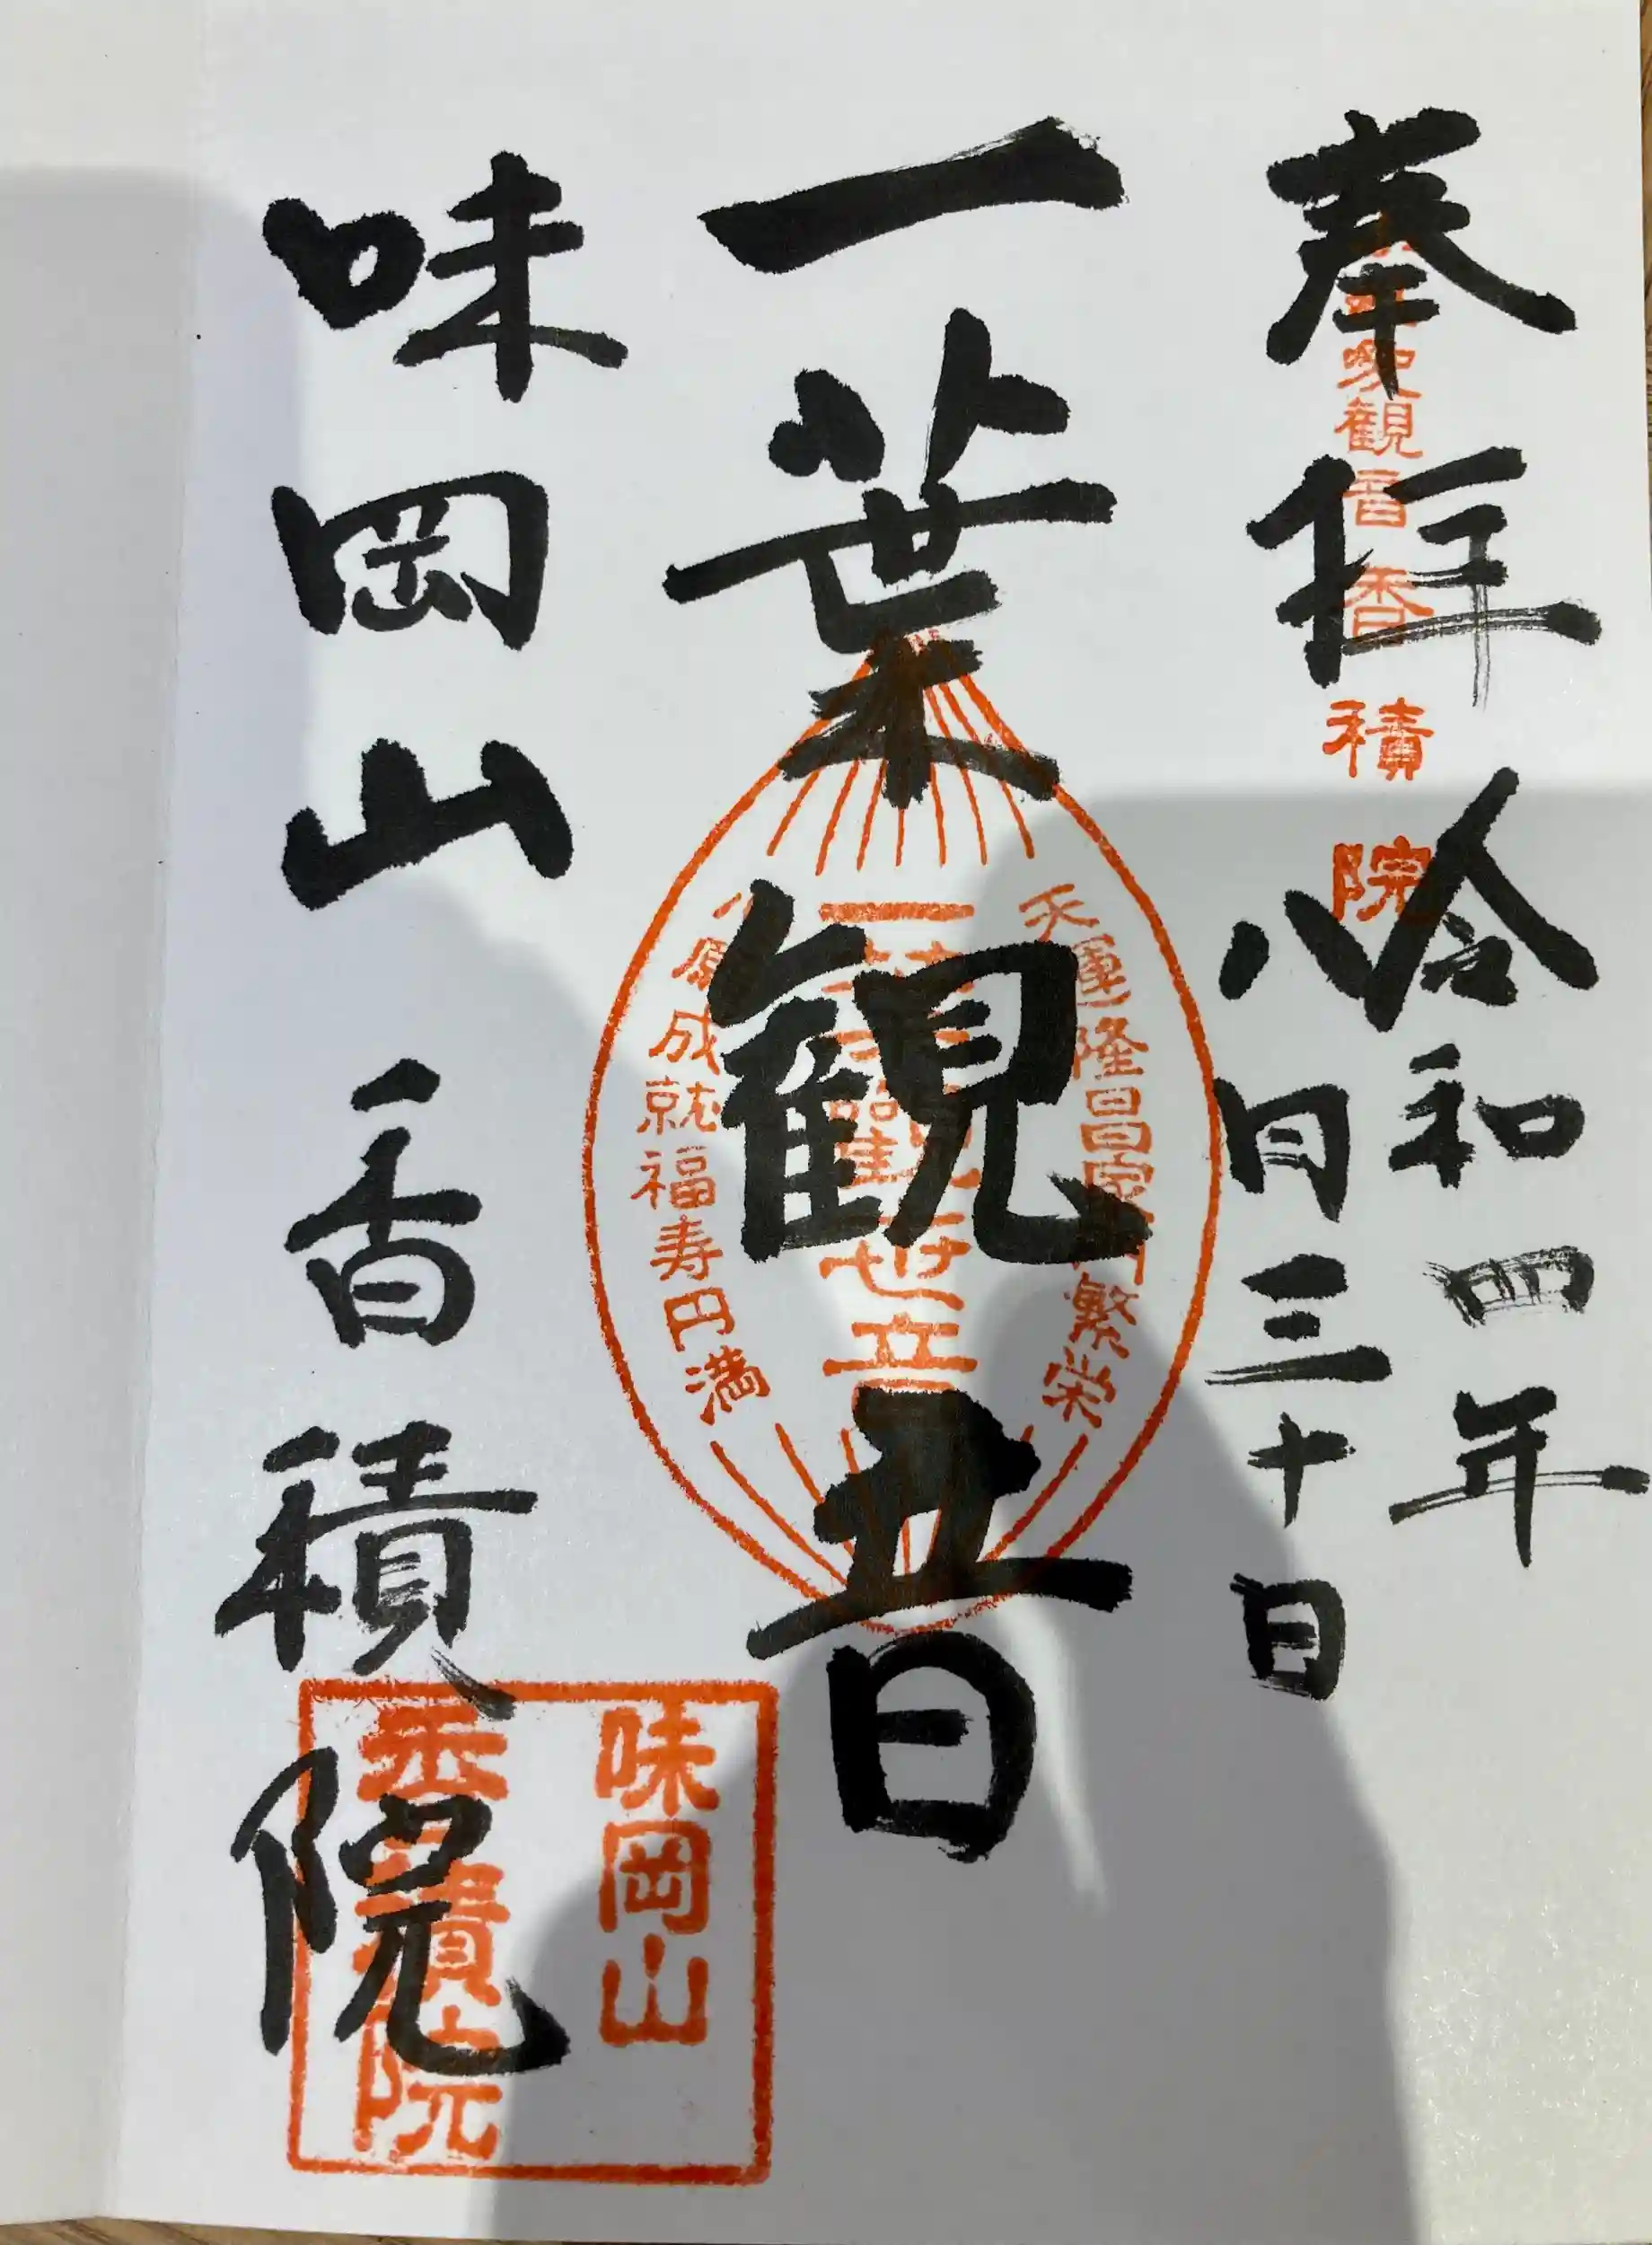 奉拝
令和四年
八月三十日
観音
香積院
一葉観音
天運隆昌家門繁栄
一葉観世音
願成就福寿円満
味岡山
香積院
味岡山
香積院